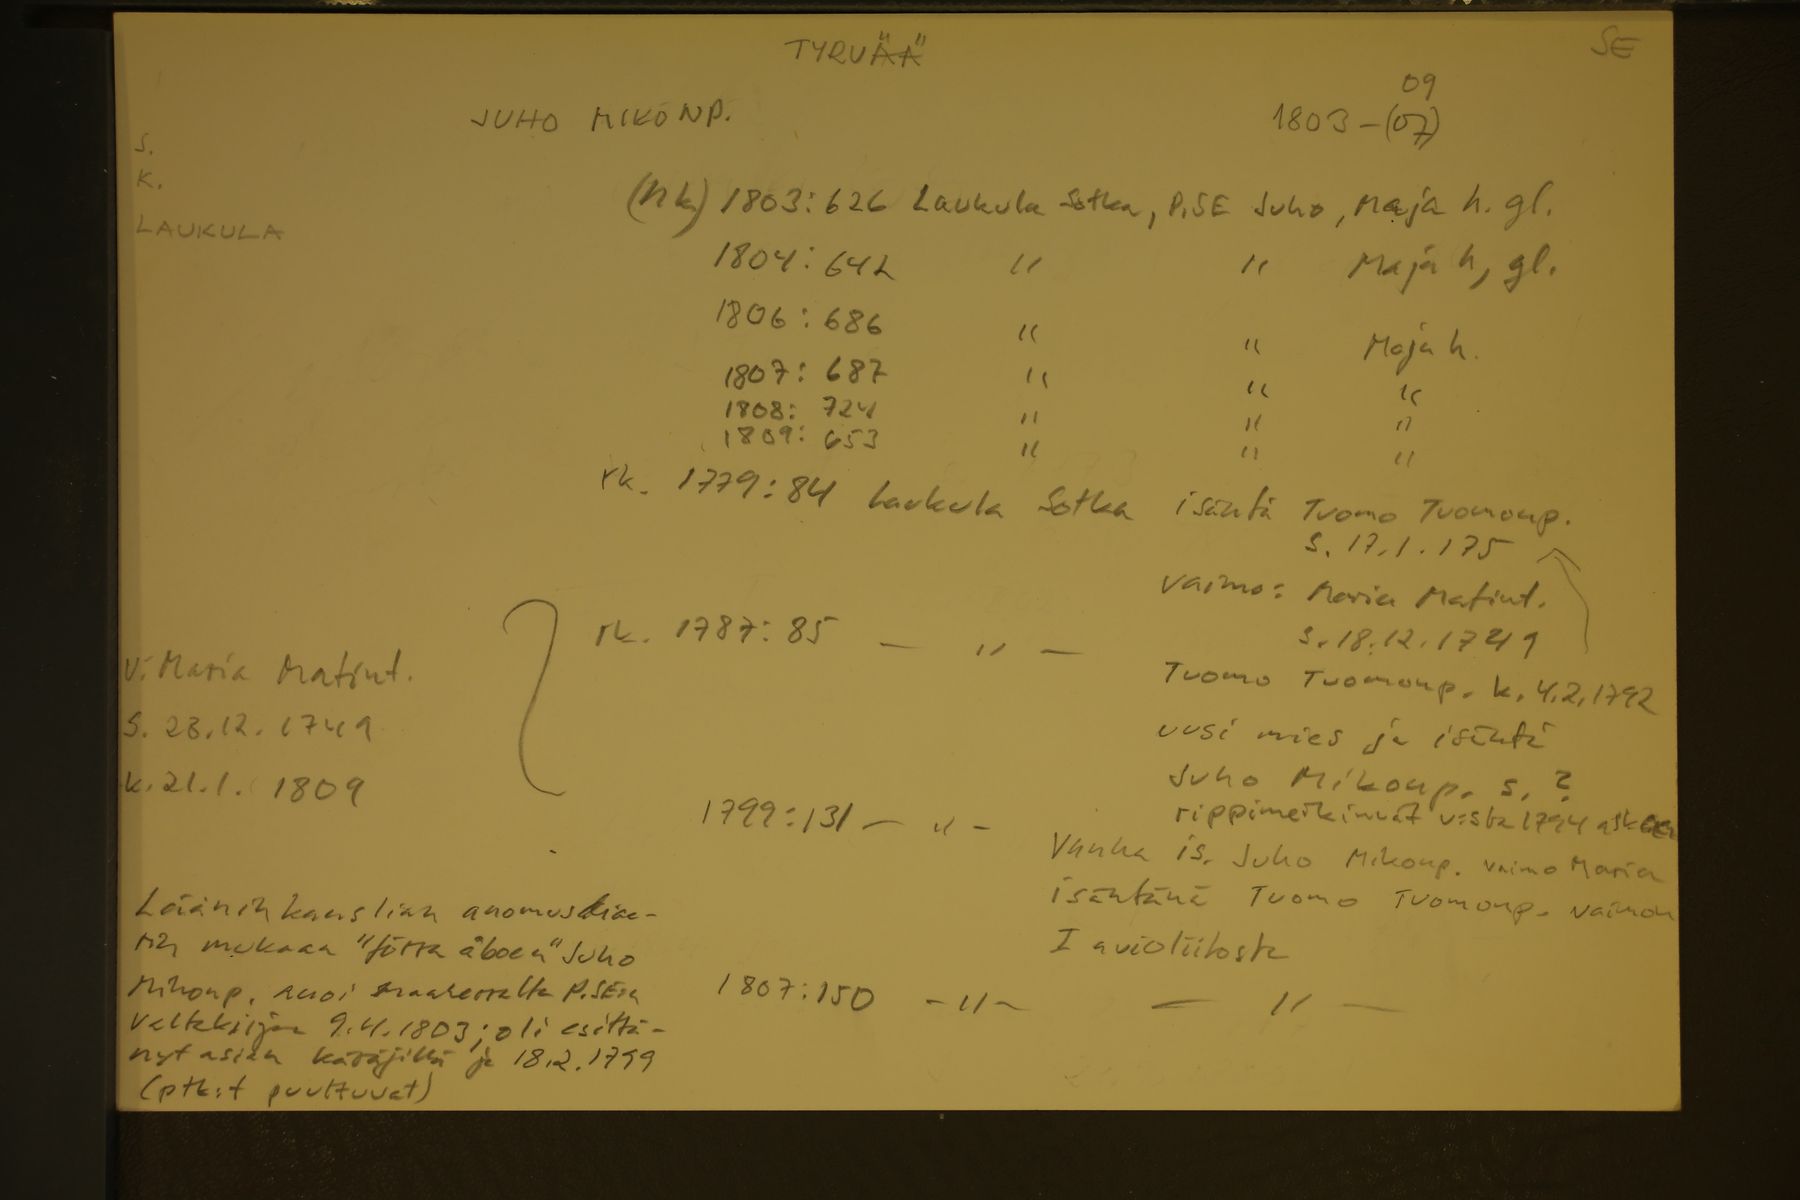 TYRVÄÄ
SE
JUHO MIKONP.
09
1803-(07)
S.
K.
LAUKULA
(hk) 1803:626 Laukula Sotka, P.SE Juho, Maja h. gl.
1804:642 " " Maja h, gl.
1806:686 " " Maja h.
1807:687 " " "
1808:724 " " "
1809:653 " " "
rk. 1779:84 Laukula Sotka isäntä Tuomo Tuomonp.
s. 17.1.175
vaimo: Maria Matint.
s.18.12.1749
rk. 1787:85 — " —
Tuomo Tuomonp. k. 4.2.1792
uusi mies ja isäntä
Juho Mikonp. s. ?
rippimerkinnät v:sta 1794
V: Maria Matint.
S. 28.12.1749
k.21.1. 1809
1799:131 — " —
Vanha is. Juho Mikonp. vaimo Maria
isäntänä Tuomo Tuomonp. vaimon
I avioliitosta
1807:150 — " — — " —
Läänin kanslian anomusdiaa-
rin mukaan "förra åboen" Juho
Mikonp. anoi maaherralta P.SE:n
valtakirjaa 9.4.1803; oli esittä-
nyt asian käräjillä jo 18.2.1799
(ptk:t puuttuvat)